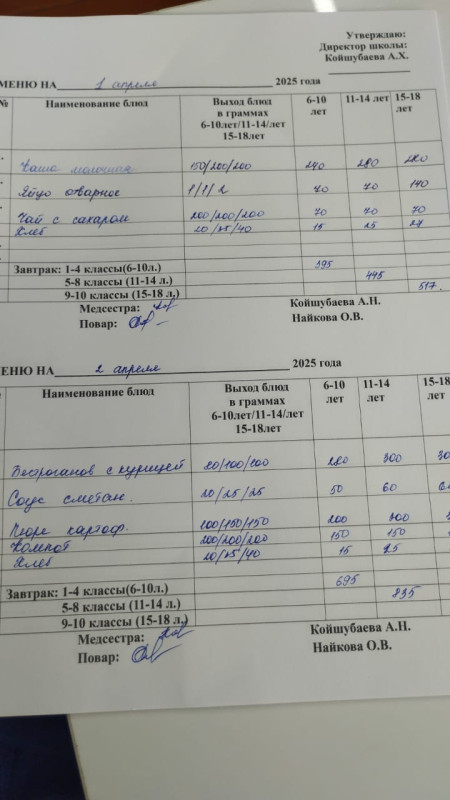 Утверждаю:
Директор школы:
Койшубаева А.Х.
МЕНЮ НА 1 апреля 2025 года
№ Наименование блюд Выход блюд в граммах 6-10лет/11-14/лет 15-18лет 6-10 лет 11-14 лет 15-18 лет
Каша молочная 150/200/200 240 280 280
Яйцо отварное 1/1/2 70 70 140
Чай с сахаром 200/200/200 70 70 70
Хлеб 20/35/40 15 25 27
Завтрак: 1-4 классы(6-10л.) 395
5-8 классы (11-14 л.) 445
9-10 классы (15-18 л.) 517.
Медсестра: Койшубаева А.Н.
Повар: Найкова О.В.
ЕНЮ НА 2 апреля 2025 года
Наименование блюд Выход блюд в граммах 6-10лет/11-14/лет 15-18лет 6-10 лет 11-14 лет 15-18 лет
Бестроганов с курицей 80/100/100 280 300 30
Соус сметан. 20/25/25 50 60
Пюре картоф. 100/150/150 200 300
Компот 200/200/200 150 150
Хлеб 20/35/40 15 25
Завтрак: 1-4 классы(6-10л.) 695
5-8 классы (11-14 л.) 835
9-10 классы (15-18 л.)
Медсестра: Койшубаева А.Н.
Повар: Найкова О.В.